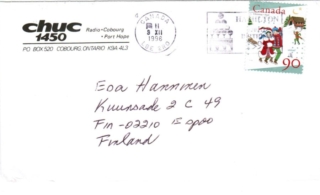 chuc
1450
Radio • Cobourg
• Port Hope
PO BOX 520 COBOURG, ONTARIO K9A 4L3
CANADA
1996
Canada
90
Esa Hanninen
Kuunsade 2 C 49
FIN-02210 Espoo
Finland